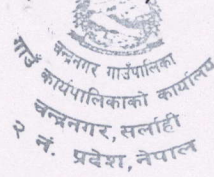 चन्द्रनगर गाउँपालिका
गाउँ कार्यपालिकाको कार्यालय
चन्द्रनगर, सर्लाही
२ नं. प्रदेश, नेपाल